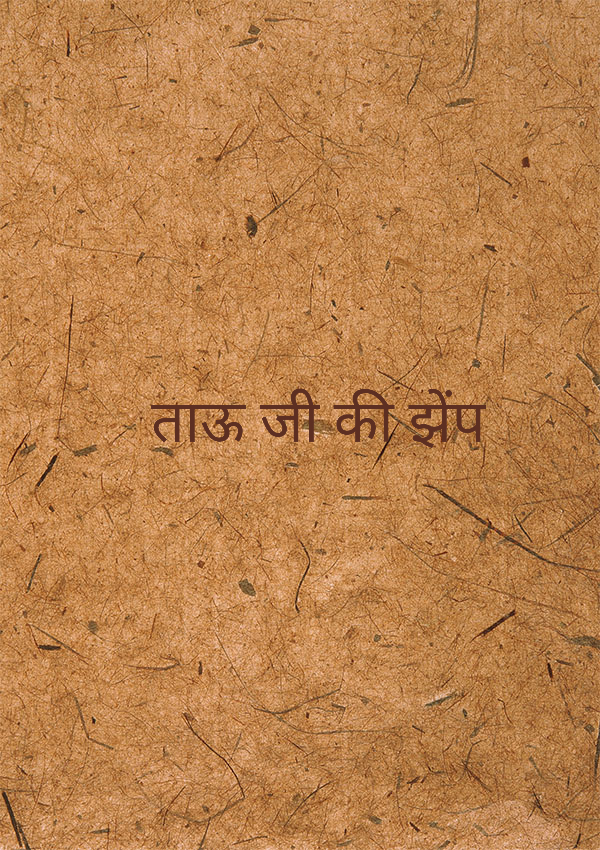 ताऊ जी की झेंप